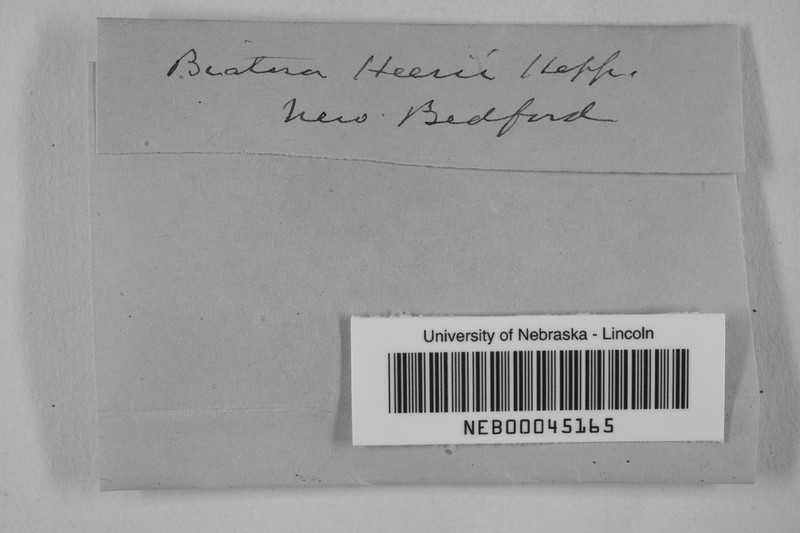 Biatora Heerii Hepp.
New Bedford
University of Nebraska - Lincoln
NEB00045165